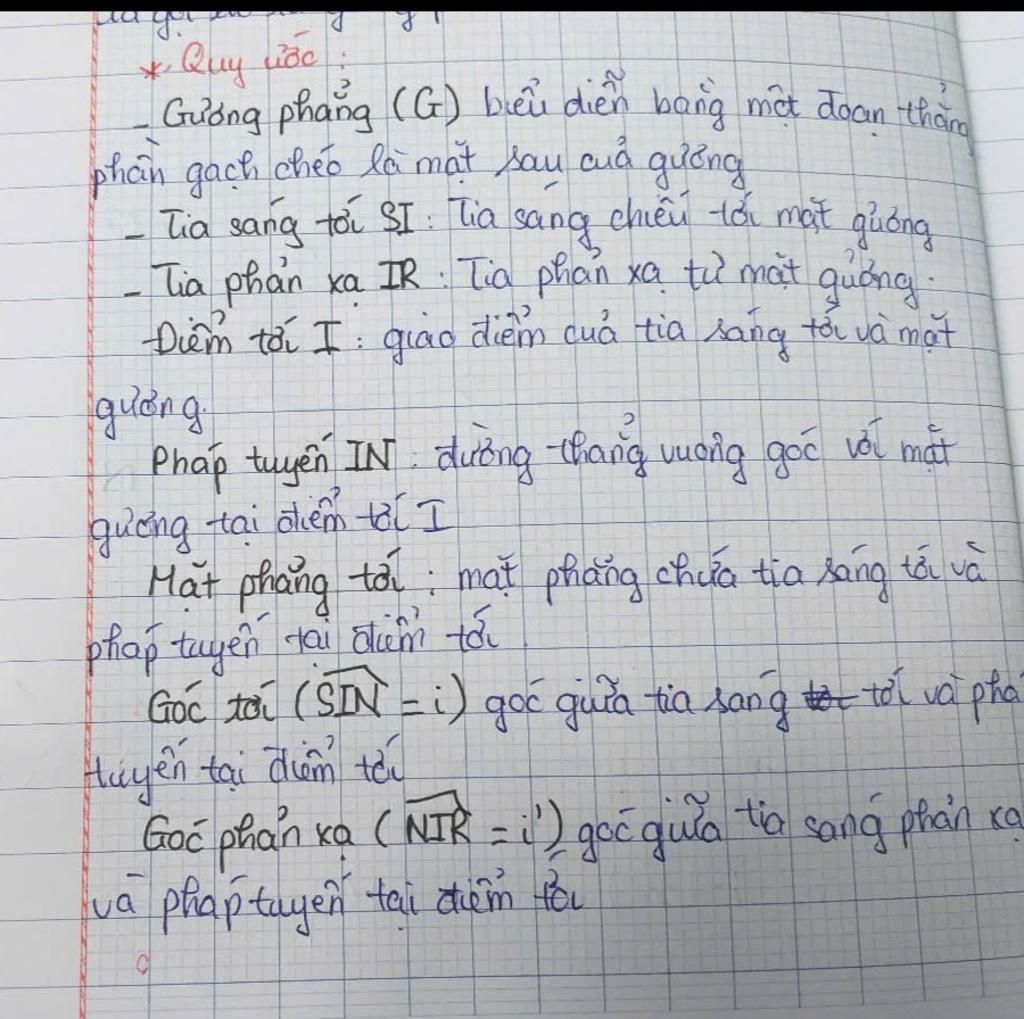 * Quy ước :
- Gương phẳng (G) biểu diễn bằng một đoạn thẳng
phần gạch chéo là mặt sau của gương
- Tia sáng tới SI : Tia sáng chiếu tới mặt gương
- Tia phản xạ IR : Tia phản xạ từ mặt gương.
Điểm tới I : giao điểm của tia sáng tới và mặt
gương.
Pháp tuyến IN : đường thẳng vuông góc với mặt
gương tại điểm tới I
Mặt phẳng tới : mặt phẳng chứa tia sáng tới và
pháp tuyến tại điểm tới.
Góc tới (SIN = i) góc giữa tia sáng tới và phá
tuyến tại điểm tới
Góc phản xạ (NIR = i') góc giữa tia sáng phản xạ
và pháp tuyến tại điểm tới